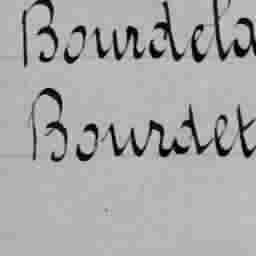 Bourdela
Bourdet